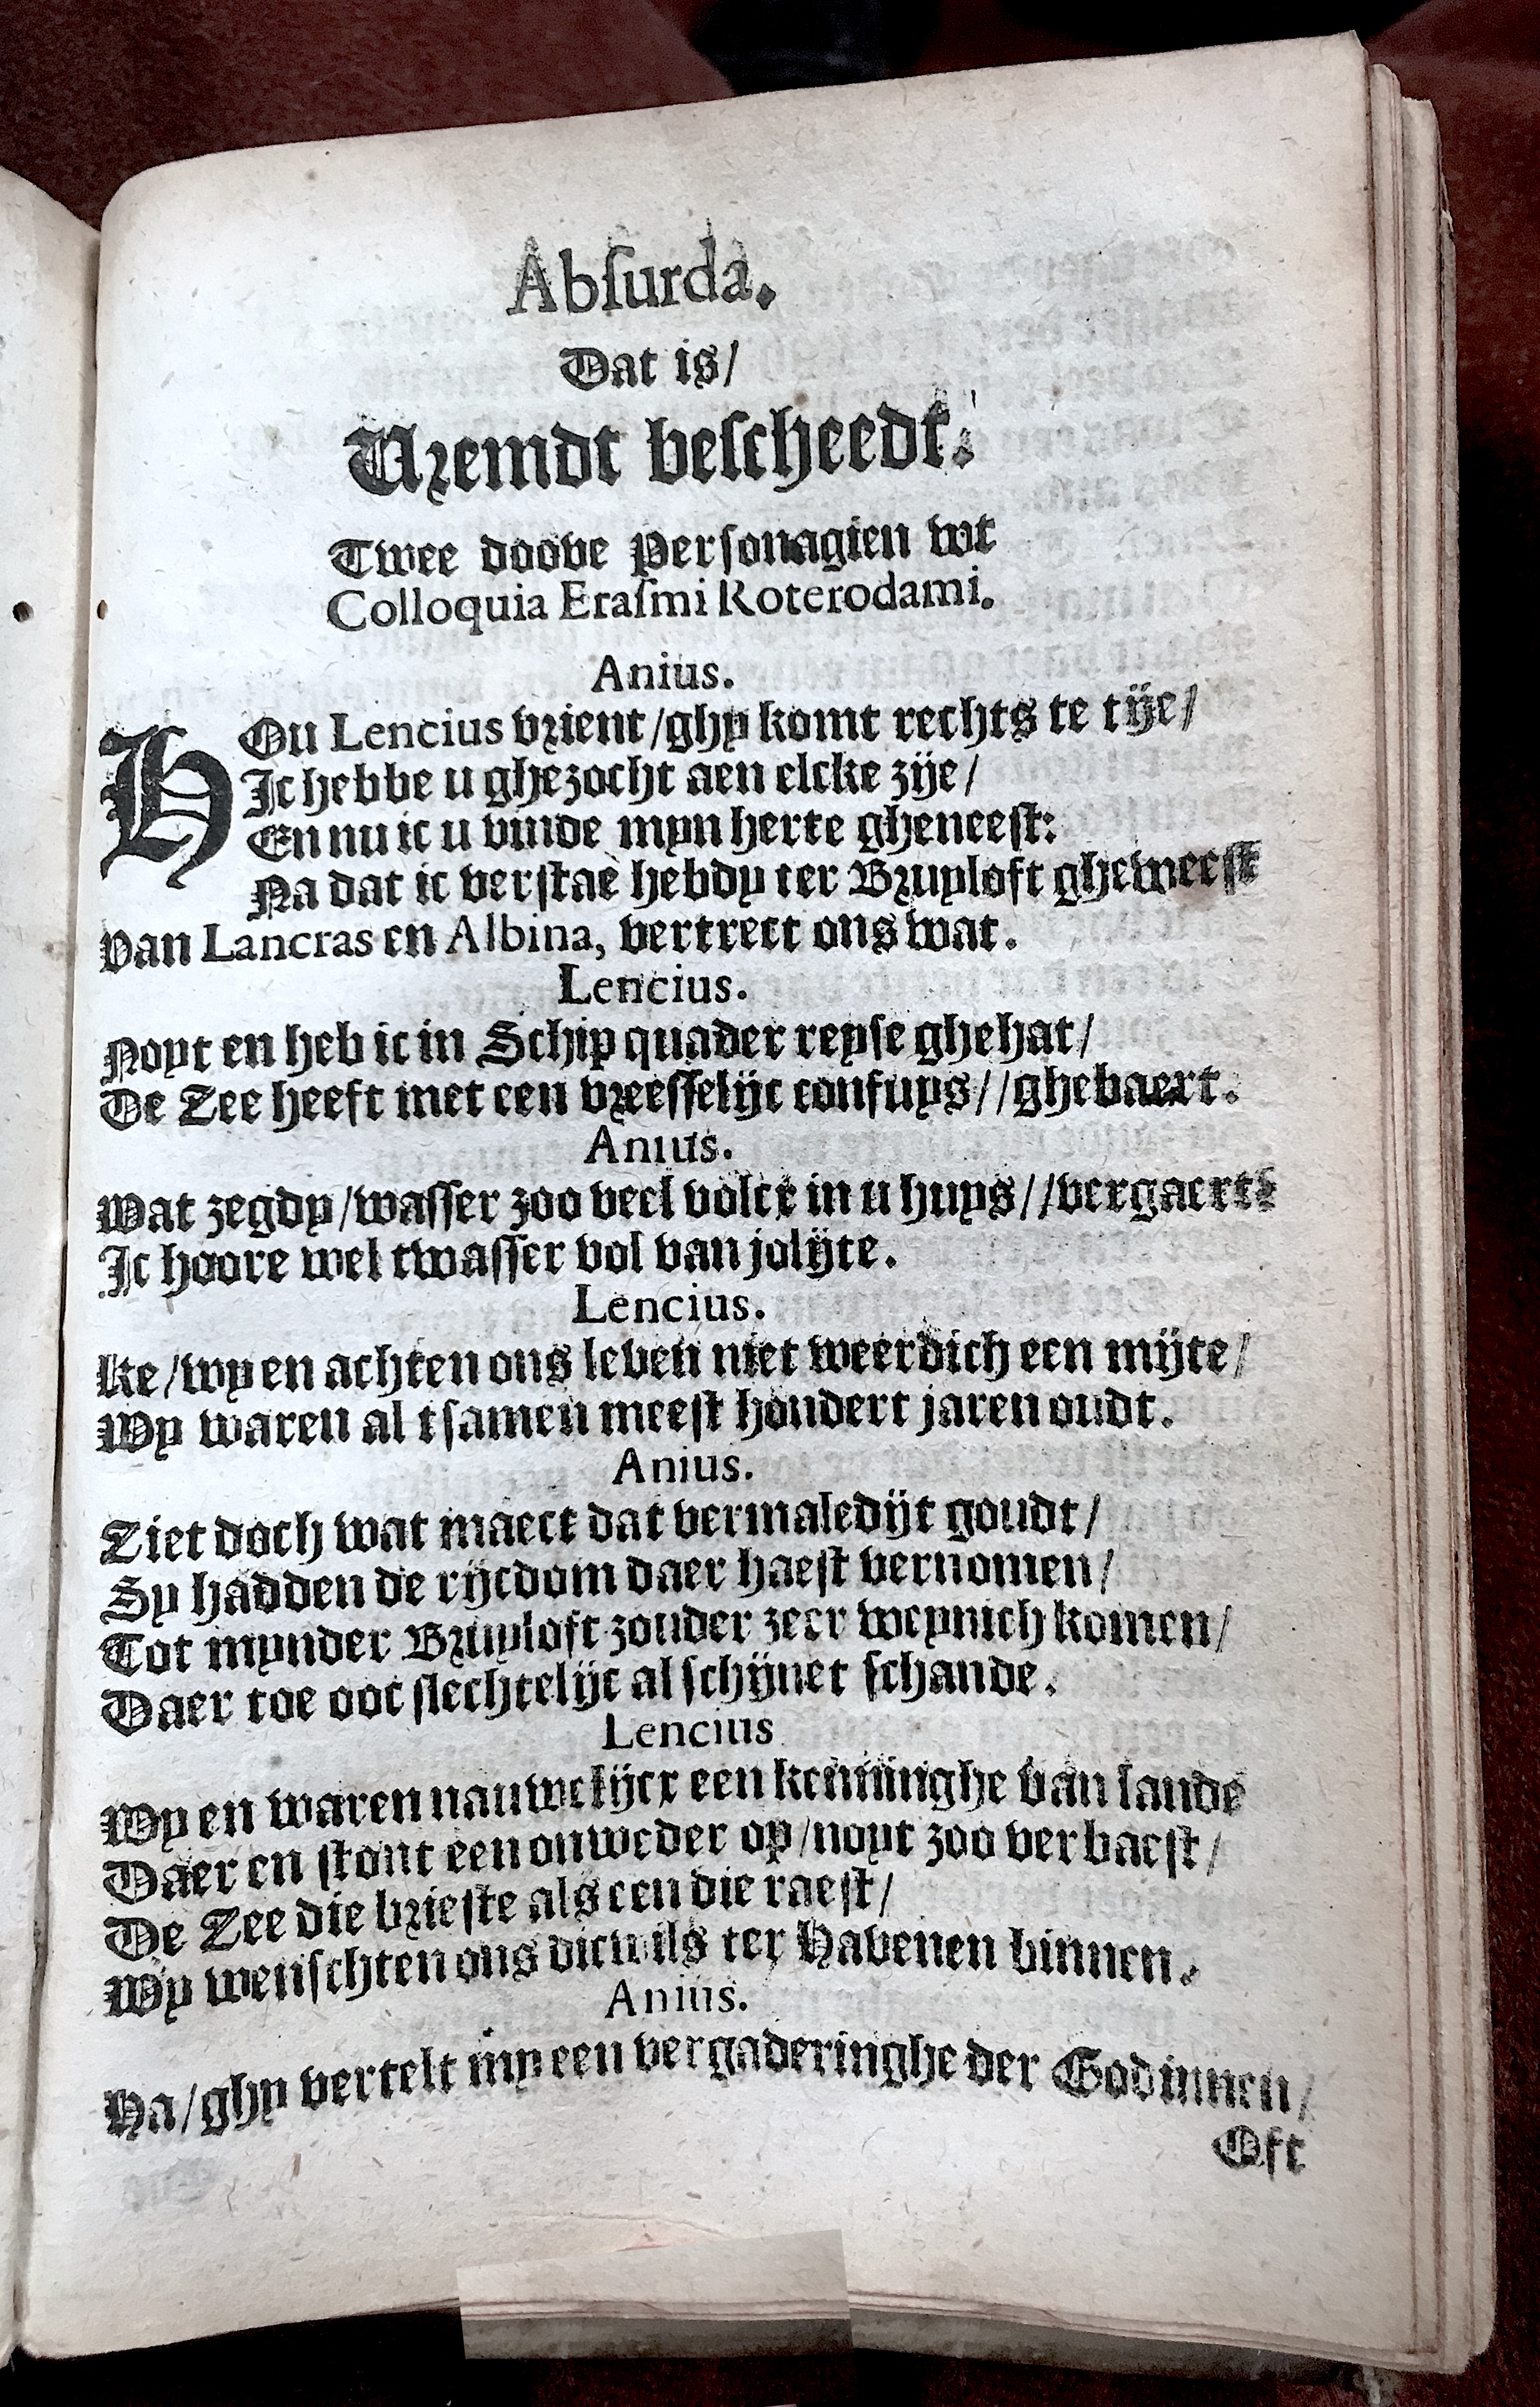 Abſurda.
Dat is/
Vremdt beſcheedt.
Twee doove Perſonagien wt
Colloquia Eraſmi Roterodami.
Anius.
HOu Lencius vrient/ghy komt rechts te tije/
Ic hebbe u ghezocht aen elcke zije/
En nu ic u vinde myn herte gheneeſt:
Na dat ic verſtae hebdy ter Bruyloft gheweeſt
Van Lancras en Albina, vertrect ons wat.
Lencius.
Noyt en heb ic in Schip quader reyſe ghehat/
De Zee heeft met een vreeſſelijc confuys//ghebaert.
Anius.
Wat zegdy/waſſer zoo veel volcx in u huys//vergaert?
Ic hoore wel twaſſer vol van jolijte.
Lencius.
Ke/wy en achten ons leven niet weerdich een mijte/
Wy waren al tſamen meeſt hondert jaren oudt.
Anius.
Ziet doch wat maect dat vermaledijt goudt/
Sy hadden de rijcdom daer haeſt vernomen/
Tot mynder Bruyloft zouder zeer weynich komen/
Daer toe ooc ſlechtelijc al ſchijnet ſchande.
Lencius
Wy en waren nauwelijcx een kenninghe van lande
Daer en ſtont een onweder op/noyt zoo verbaeſt/
De Zee die brieſte als een die raeſt/
Wy wenſchten ons dicwils ter Havenen binnen.
Anius.
Ha/ghy vertelt my een vergaderinghe der Godinnen/
Oft